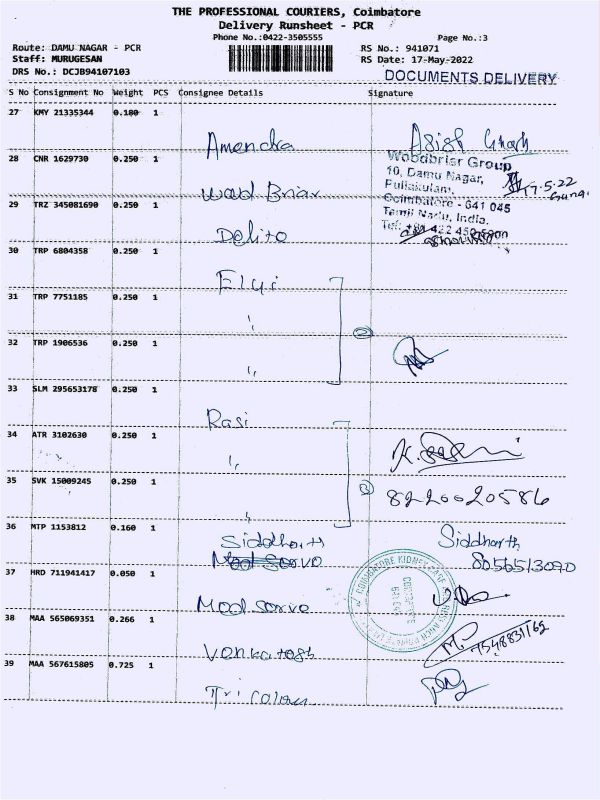 THE PROFESSIONAL COURIERS, Coimbatore
Delivery Runsheet - PCR
Phone No.:0422-3505555
Page No.:3
Route: DAMU NAGAR - PCR
RS No.: 941071
Staff: MURUGESAN
RS Date: 17-May-2022
DRS No.: DCJB94107103
DOCUMENTS DELIVERY
S No Consignment No Weight PCS Consignee Details Signature
27 KMY 21335344 0.180 1
Amendra
28 CNR 1629730 0.250 1
Wood Briar
Woodbriar Group
10, Damu Nagar,
Puliakulam,
Coimbatore - 641 045
Tamil Nadu, India.
29 TRZ 345081690 0.250 1
Delito
30 TRP 6804358 0.250 1
Elgi
31 TRP 7751185 0.250 1
"
32 TRP 1906536 0.250 1
"
33 SLM 295653178 0.250 1
Rasi
34 ATR 3102630 0.250 1
"
35 SVK 15009245 0.250 1
"
3
8220020586
36 MTP 1153812 0.160 1
Siddharth
Siddharth
8056513090
37 HRD 711941417 0.050 1
Mod servo
38 MAA 565069351 0.266 1
Venkatesh
7548831162
39 MAA 567615805 0.725 1
Tricolour